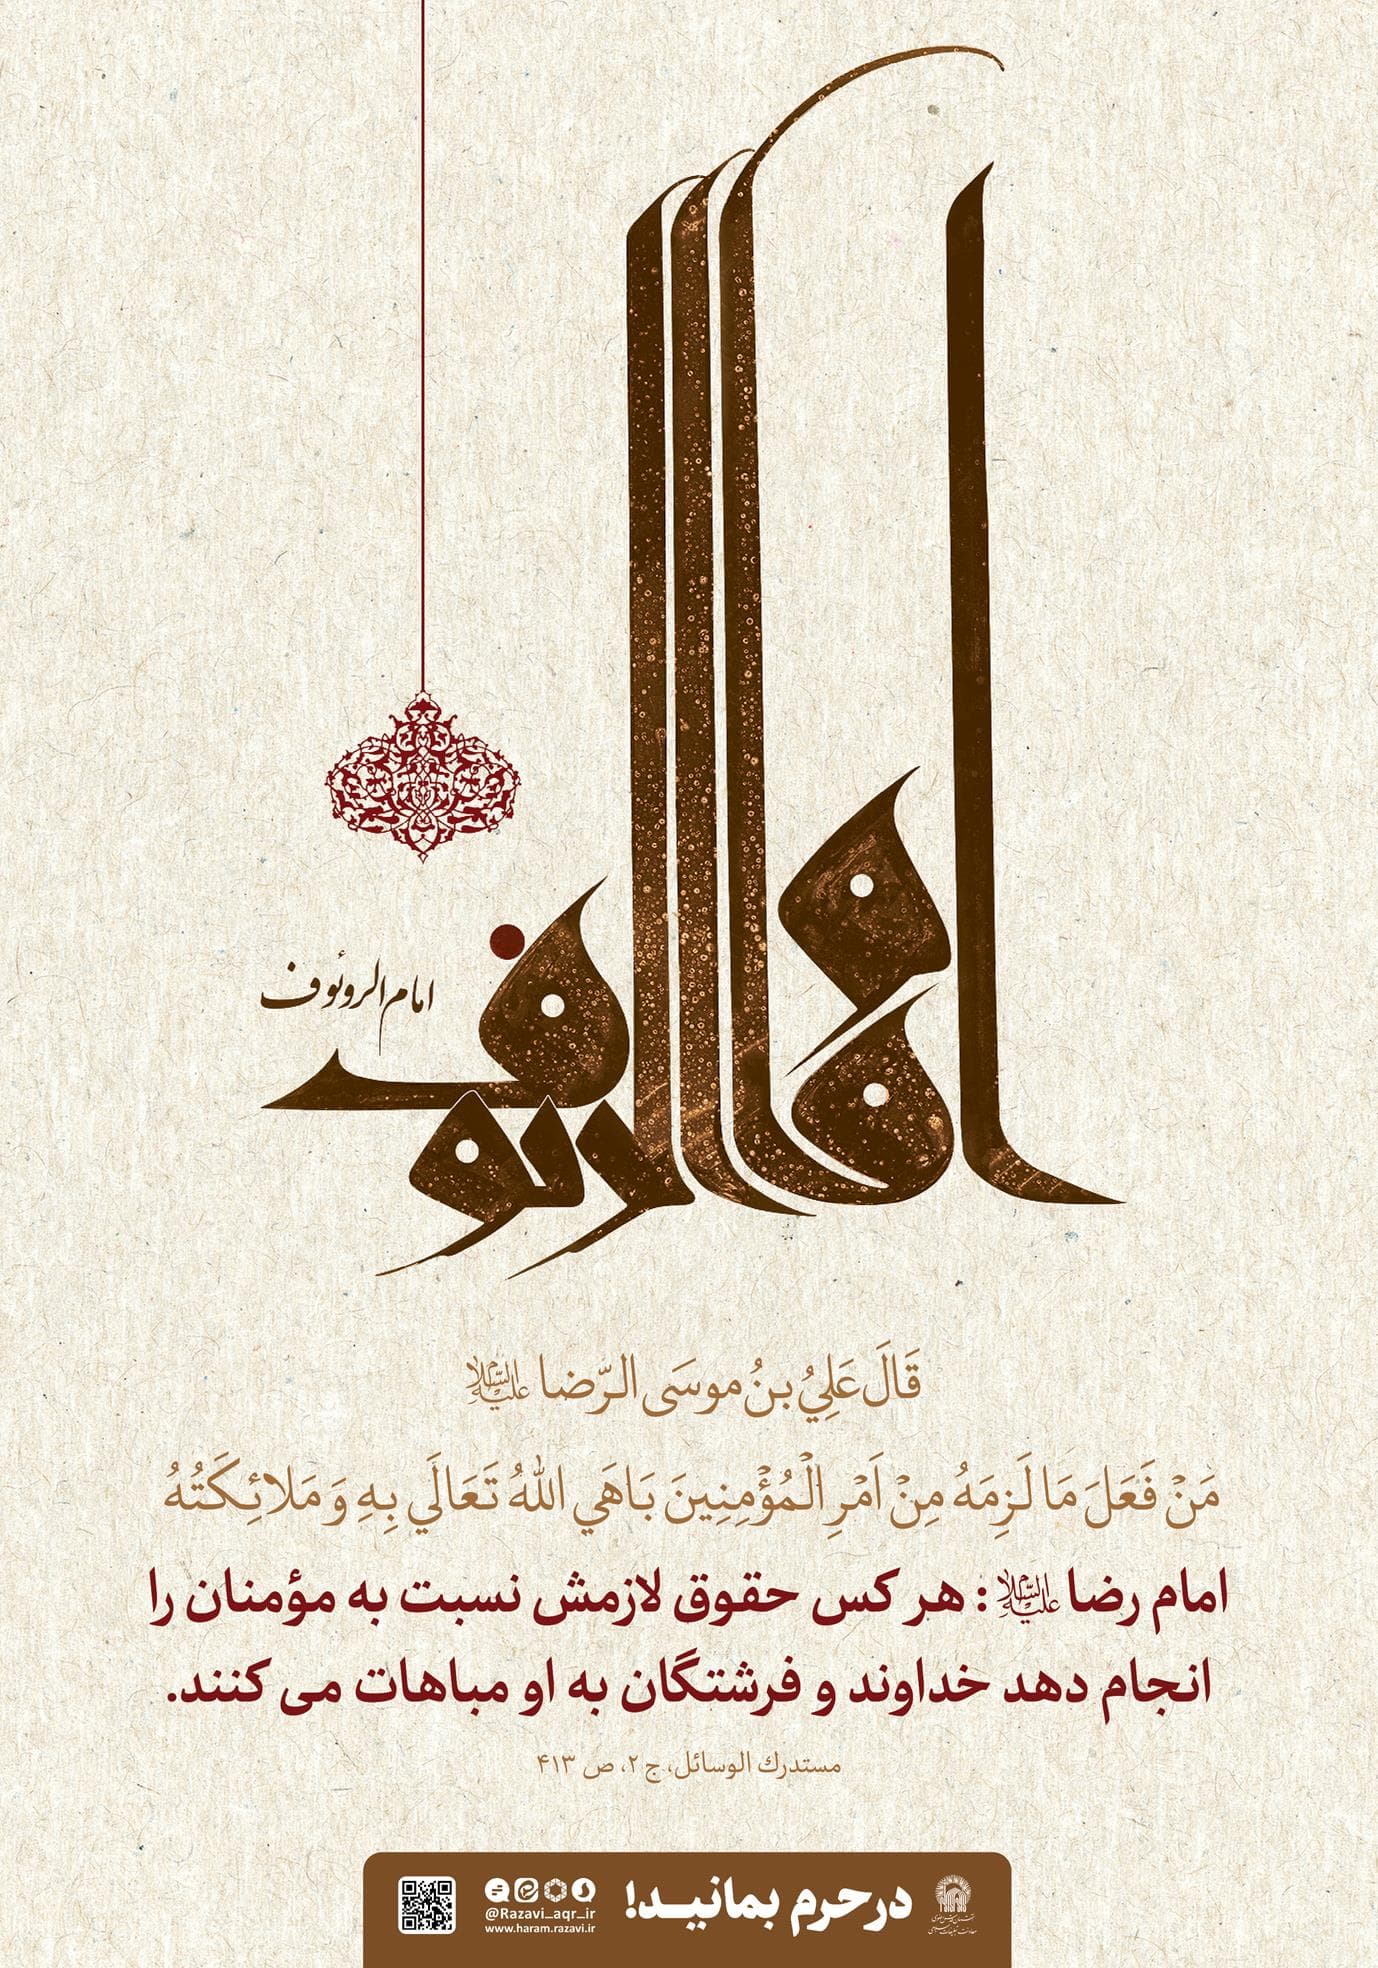 امام الرئوف
امام الروئوف
قَالَ عَلِيُ بنُ موسَى الرّضا علیه السلام
مَنْ فَعَلَ مَا لَزِمَهُ مِنْ اَمْرِ الْمُؤْمِنِينَ بَاهَي اللهُ تَعَالَي بِهِ وَ مَلائِكَتُهُ
امام رضا علیه السلام : هر کس حقوق لازمش نسبت به مؤمنان را
انجام دهد خداوند و فرشتگان به او مباهات می کنند.
مستدرك الوسائل، ج ۲، ص ۴۱۳
در حرم بمانید!
@Razavi_aqr_ir
www.haram.razavi.ir